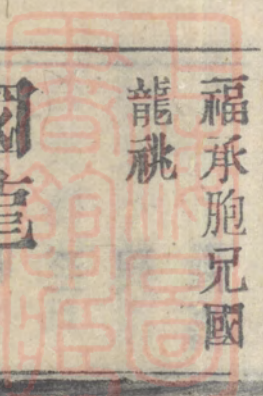 福承胞兄國
龍祧
國龍